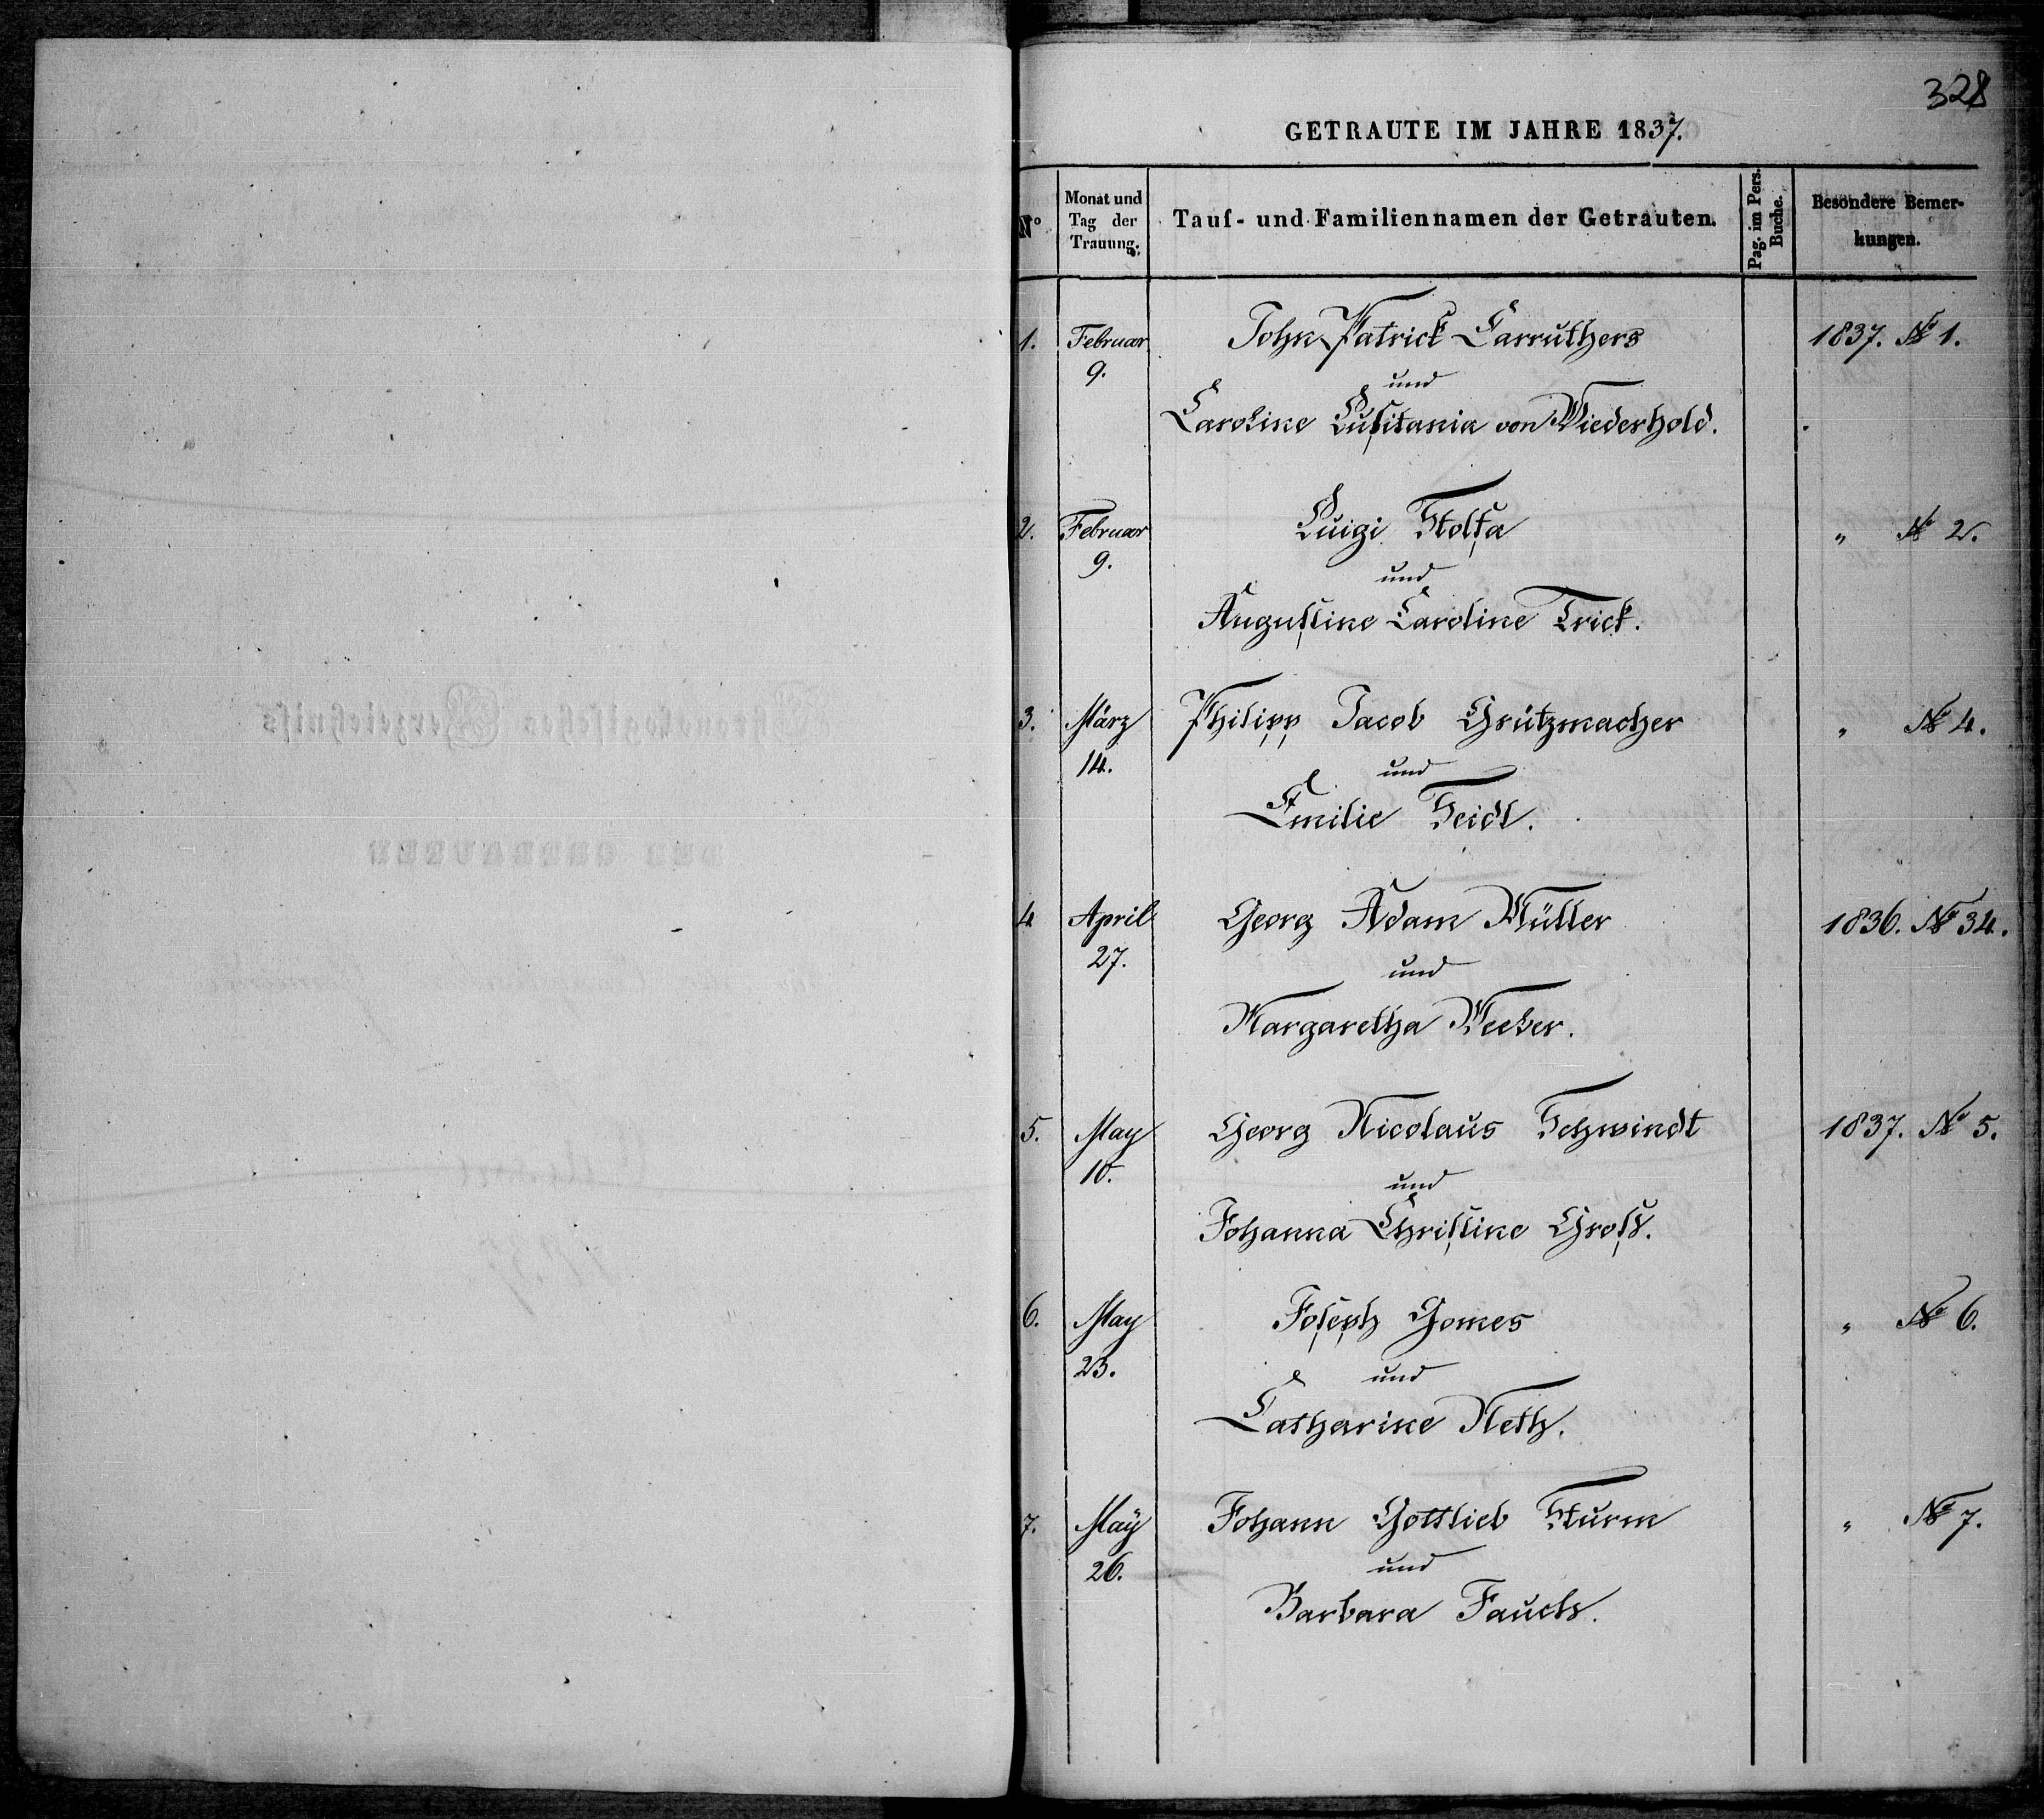 328
GETRAUTE IM JAHRE 1837.
No
Monat und
Tag der
Trauung.
Tauf- und Familiennamen der Getrauten.
Pag. im Pers.
Buche.
Besondere Bemer-
kungen.
1. Februar John Patrick Carruthers 1837. No 1.
9. und
Caroline Lusitania von Wiederhold.
2. Februar Luigi Stolfa „ No 2.
9. und
Augustine Caroline Frick.
3. März Philipp Jacob Grützmacher „ No 4.
14. und
Emilie Seidl.
4 April Georg Adam Müller 1836. No 34.
27. und
Margaretha
5. May Georg Nicolaus Schwindt 1837. No 5.
10. und
Johanna Christine Groß.
6. May Joseph Gomes „ No 6.
23. und
Catharine Neth.
7. May Johann Gottlieb Sturm „ No 7.
26. und
Barbara Fauch.